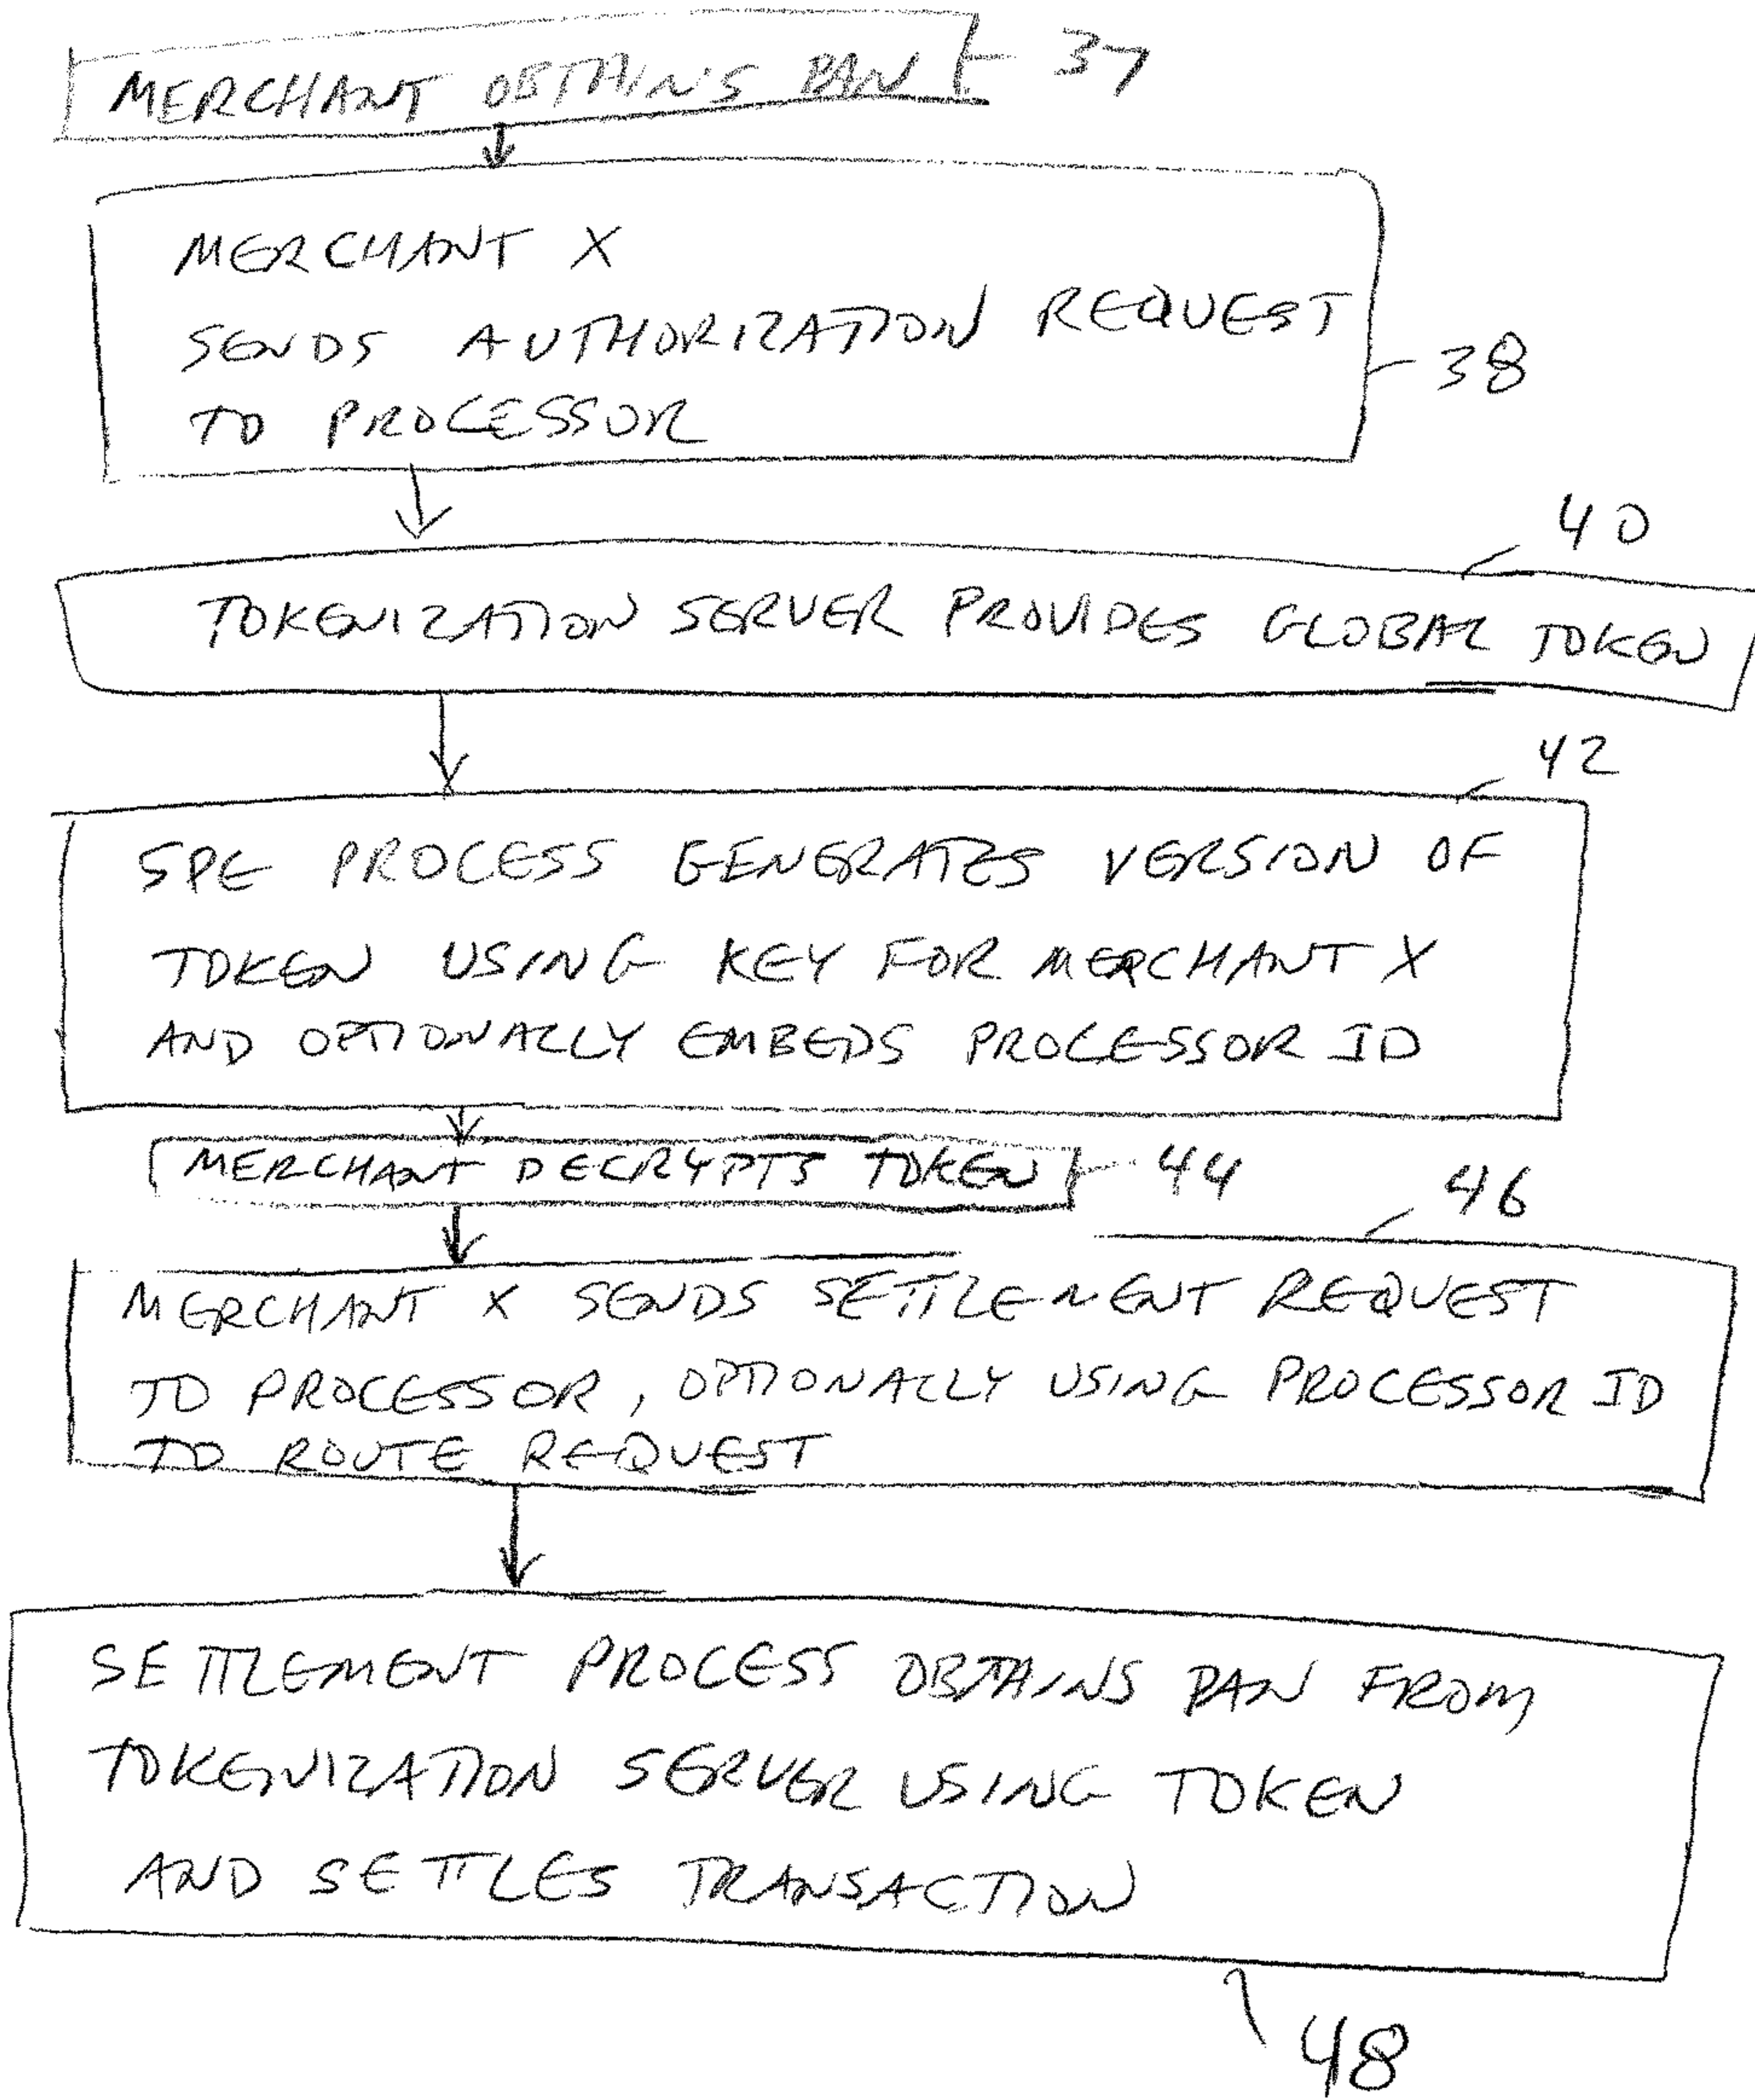 MERCHANT OBTAINS PAN 37
MERCHANT X
SENDS AUTHORIZATION REQUEST
TO PROCESSOR
38
40
TOKENIZATION SERVER PROVIDES GLOBAL TOKEN
42
SPE PROCESS GENERATES VERSION OF
TOKEN USING KEY FOR MERCHANT X
AND OPTIONALLY EMBEDS PROCESSOR ID
MERCHANT DECRYPTS TOKEN 44
46
MERCHANT X SENDS SETTLEMENT REQUEST
TO PROCESSOR, OPTIONALLY USING PROCESSOR ID
TO ROUTE REQUEST
SETTLEMENT PROCESS OBTAINS PAN FROM
TOKENIZATION SERVER USING TOKEN
AND SETTLES TRANSACTION
48